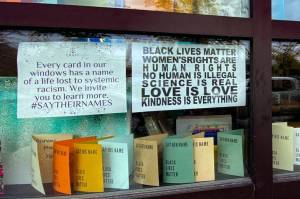 Every card in our
windows has a name
of a life lost to systemic
racism. We invite
you to learn more.
#SAYTHEIRNAMES
BLACK LIVES MATTER
WOMEN'S RIGHTS ARE
HUMAN RIGHTS
NO HUMAN IS ILLEGAL
SCIENCE IS REAL
LOVE IS LOVE
KINDNESS IS EVERYTHING
SAY HIS NAME
BLACK
LIVES
MATTER